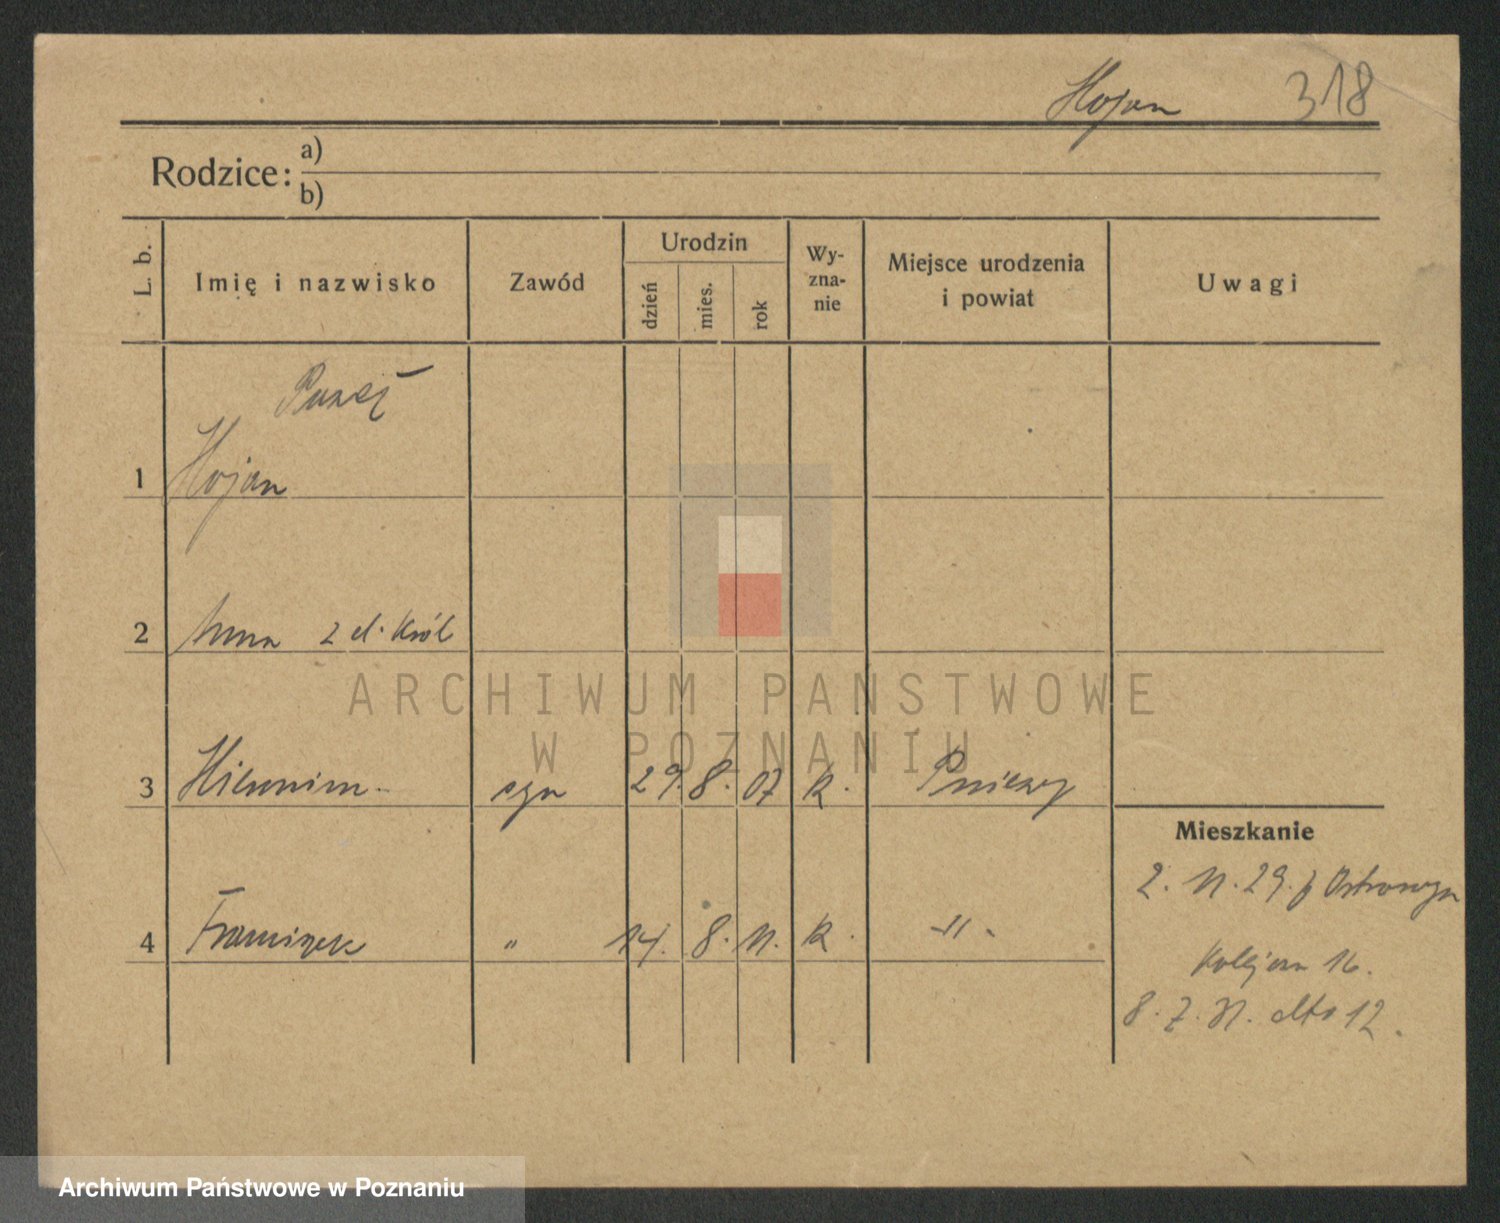 Hojan 318
Rodzice: a)
b)
L. b. Imię i nazwisko Zawód Urodzin dzień mies. rok Wy-zna-nie Miejsce urodzenia i powiat Uwagi
1 Hojan
2 Anna z d. Król
3 syn 29. 8. 07 k. Pniewy
Mieszkanie
4 Franciszek " 14. 8. 11. k. -"-
2. 11. 29.
16.
8. 7. 31. dto 12.
ARCHIWUM PAŃSTWOWE
W POZNANIU
Archiwum Państwowe w Poznaniu